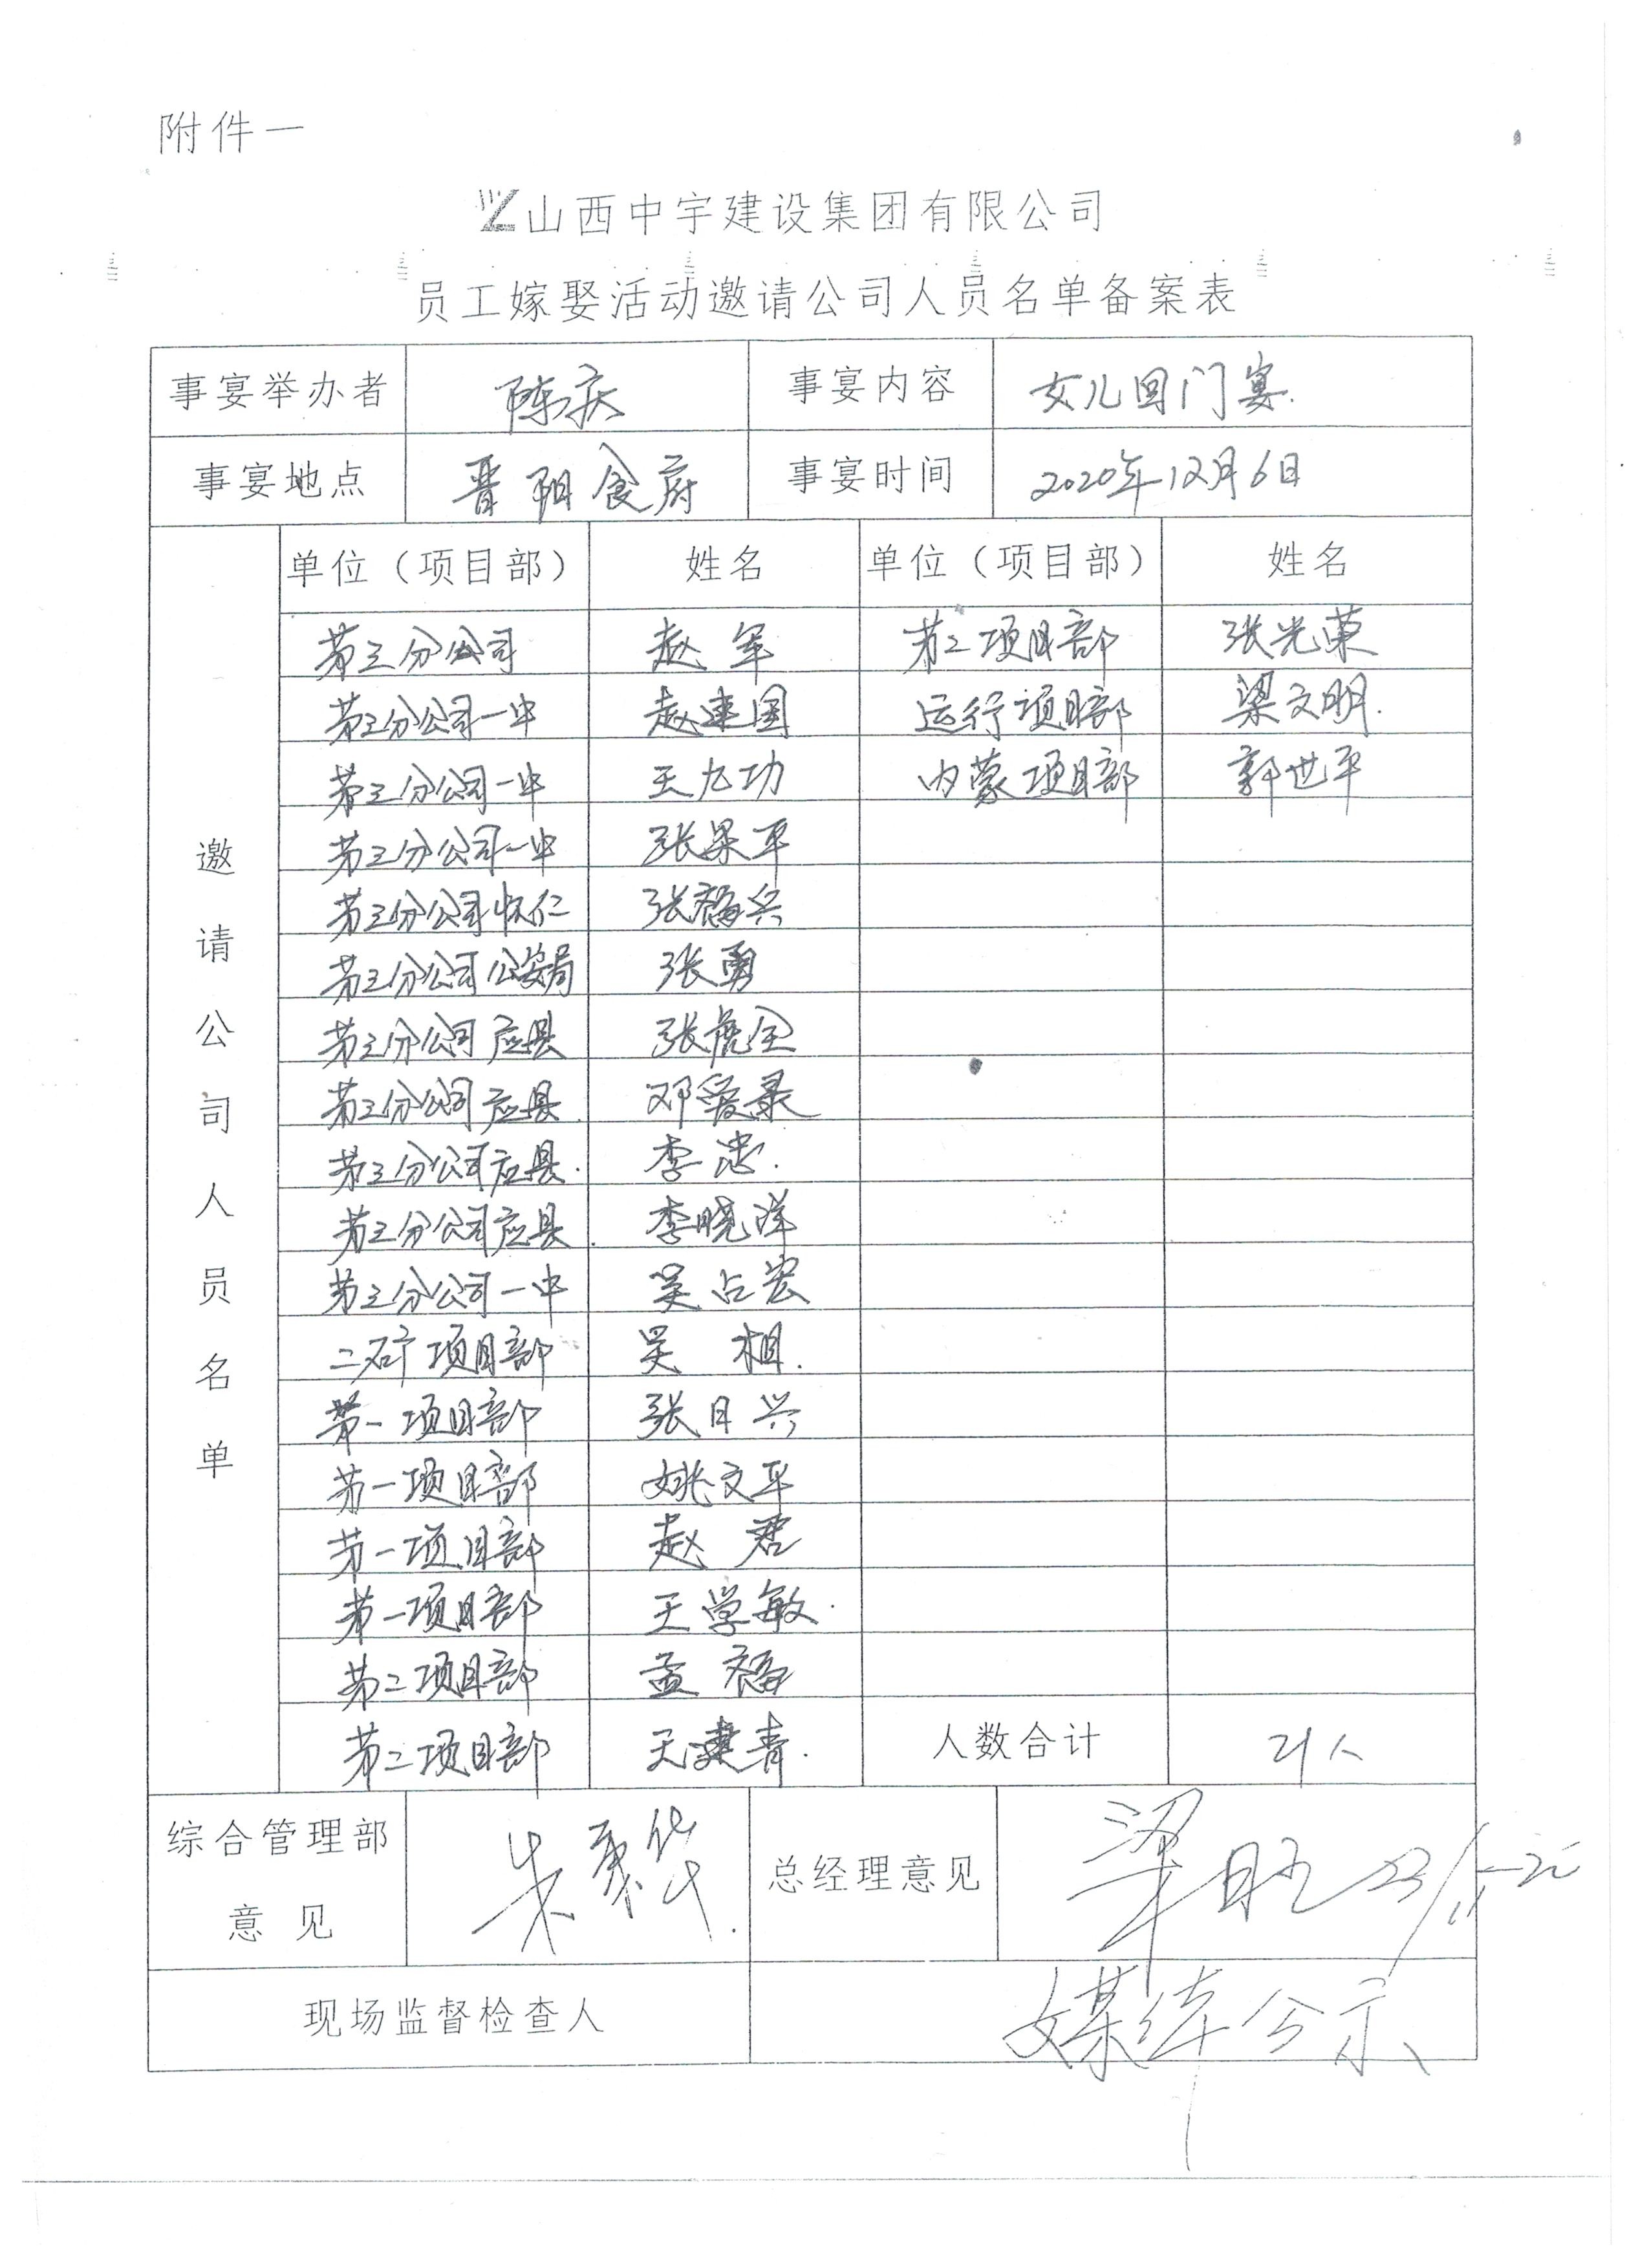 附件一
山西中宇建设集团有限公司
员工嫁娶活动邀请公司人员名单备案表
事宴举办者 陈庆 事宴内容 女儿回门宴.
事宴地点 晋阳食府 事宴时间 2020年12月6日
邀请公司人员名单
单位（项目部） 姓名 单位（项目部） 姓名
第三分公司 赵军 第二项目部 张光荣
第三分公司一中 赵建国 运行项目部 梁文明.
第三分公司一中 王九功 内蒙项目部 郭世平
第三分公司一中 张果平
第三分公司怀仁 张福兴
第三分公司公安局 张勇
第三分公司应县 张虎全
第三分公司应县. 邓爱录
第三分公司应县. 李忠.
第三分公司应县. 李晓洋
第三分公司一中 吴占宏
二矿项目部 吴相.
第一项目部 张日兴
第一项目部 姚文平
第一项目部 赵君
第一项目部 王学敏.
第二项目部 孟福
第二项目部 王建青.
人数合计 21人
综合管理部
意见
总经理意见 梁
现场监督检查人 公示